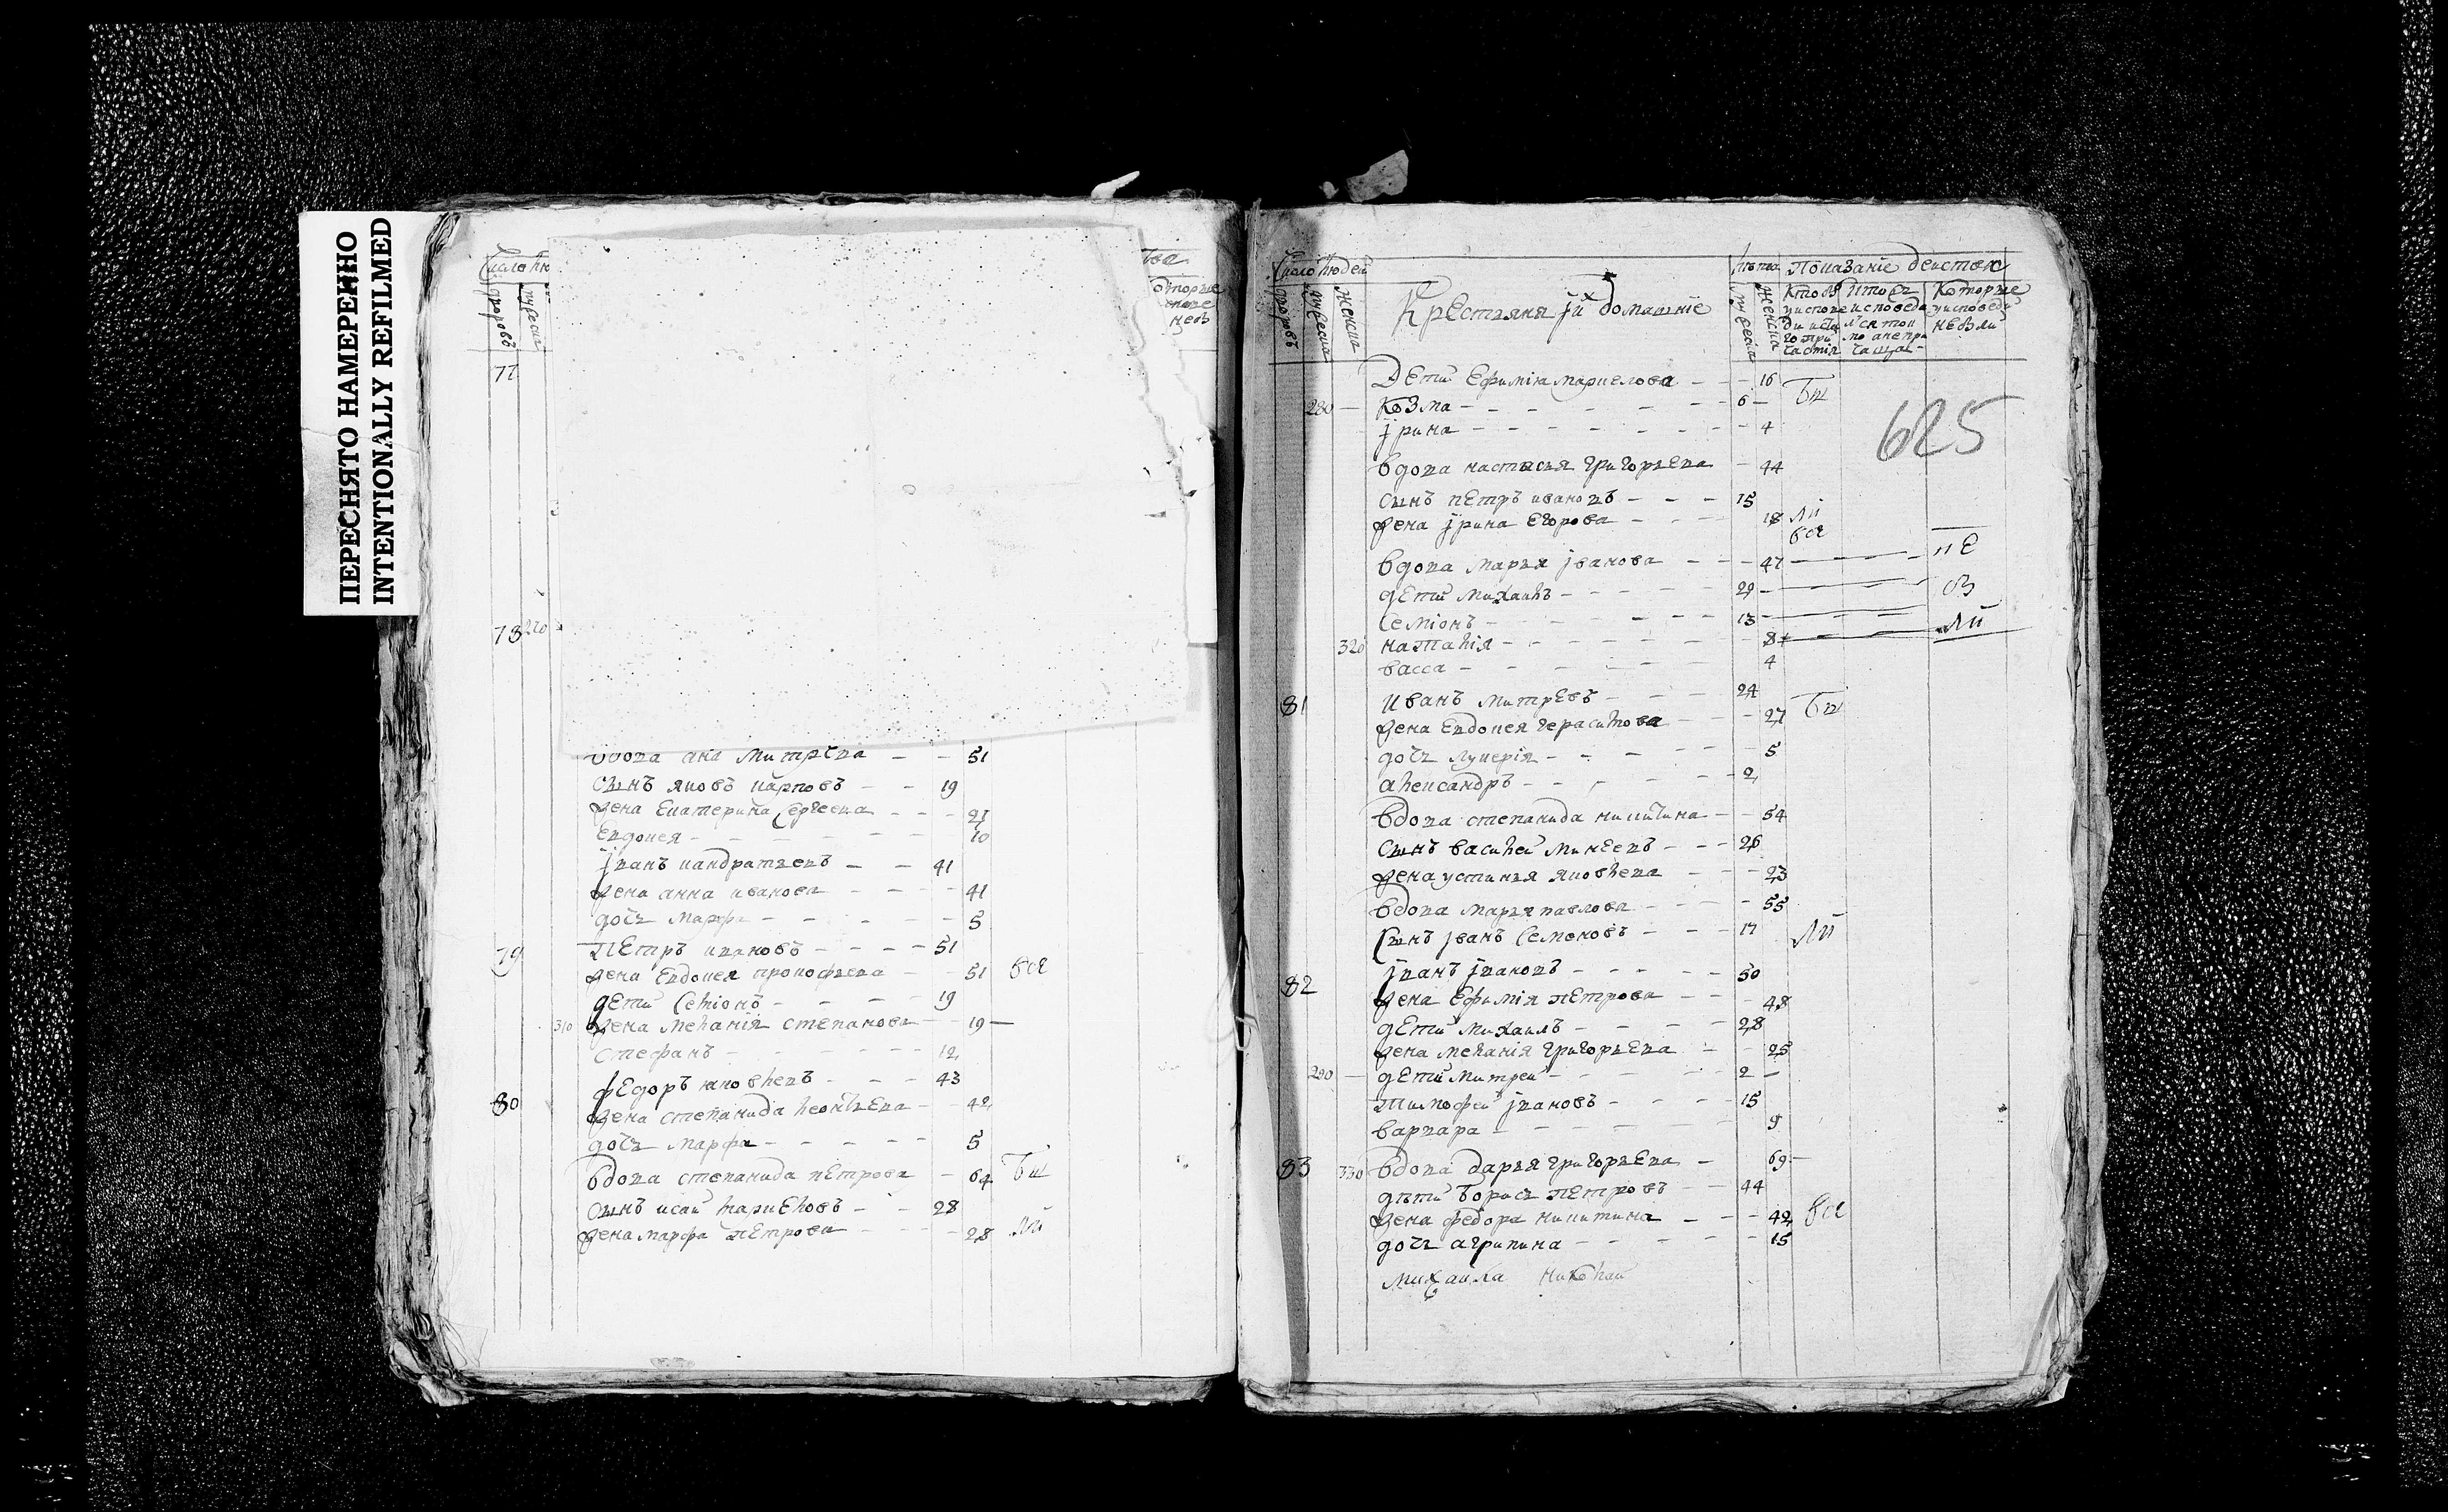 ПЕРЕСНЯТО НАМЕРЕННО
INTENTIONALLY REFILMED
Число лю
дворовъ
мужеска
77
78 270
вдова ана митрева - - 51
сынъ яковъ карповъ - - 19
жена екатерина сергеева - - - 21
евдокея - - - - 10
јванъ кандратьевъ - - 41
жена анна иванова - - - 41
дочь марфа - - - - 5
79 петръ ивановъ - - - - 51
жена евдокея прокофьева - - 51 все
дети семіонъ - - - - 19
310 жена меланія степанова - - 19 -
стефанъ - - - - 12
федоръ яковлевъ - - - 43
80 жена степанида леонтьева - - 42
дочь марфа - - - - - 5
вдова степанида петрова - 64 бы
сынъ исаи маркеловъ - - 28
жена марфа петрова - - - 28 ли
Число людей
дворовъ
мужеска
женска
Крестьяня јих домашніе
лѣтва
мужеска
женска
Показаніе деиство
Которые
уисповеди
небыли
дети ефимія маркелова - - - 16
280 козма - - - - - - 6 - бы
јрина - - - - - - - 4
625
вдова настасья григорьева - 44
сынъ петръ ивановъ - - - 15
жена јрина егорова - - - 18 ли
все
вдова марья јванова - - - 47 - не
дети михаилъ - - - - 29 - бы
семіонъ - - - - 13 -
320 наталія - - - - - - 8 - ли
васса - - - - - - 4
81 иванъ митревъ - - - - 24
жена евдокея герасимова - - - 27 бы
дочь лукерія - - - - 5
александръ - - - - - - 2
вдова степанида никитина - - 54
сынъ василеи минеевъ - - - 26
жена устинья яковлева - - - 23
вдова марья павлова - - - - 55
сынъ јванъ семеновъ - - - 17 ли
82 јванъ јвановъ - - - - - 50
жена ефимія петрова - - - 48
дети михаилъ - - - - 28
жена меланія григорьева - - 25
290 - дети митреи - - - - - 2 -
тимофеи јвановъ - - - - 15
варвара - - - - - - 9
83 330 вдова дарья григорьева - 69 -
дѣти борисъ петровъ - - 44
жена федора никитина - - - 42 все
дочь агрипина - - - - - 15
михаила николаи